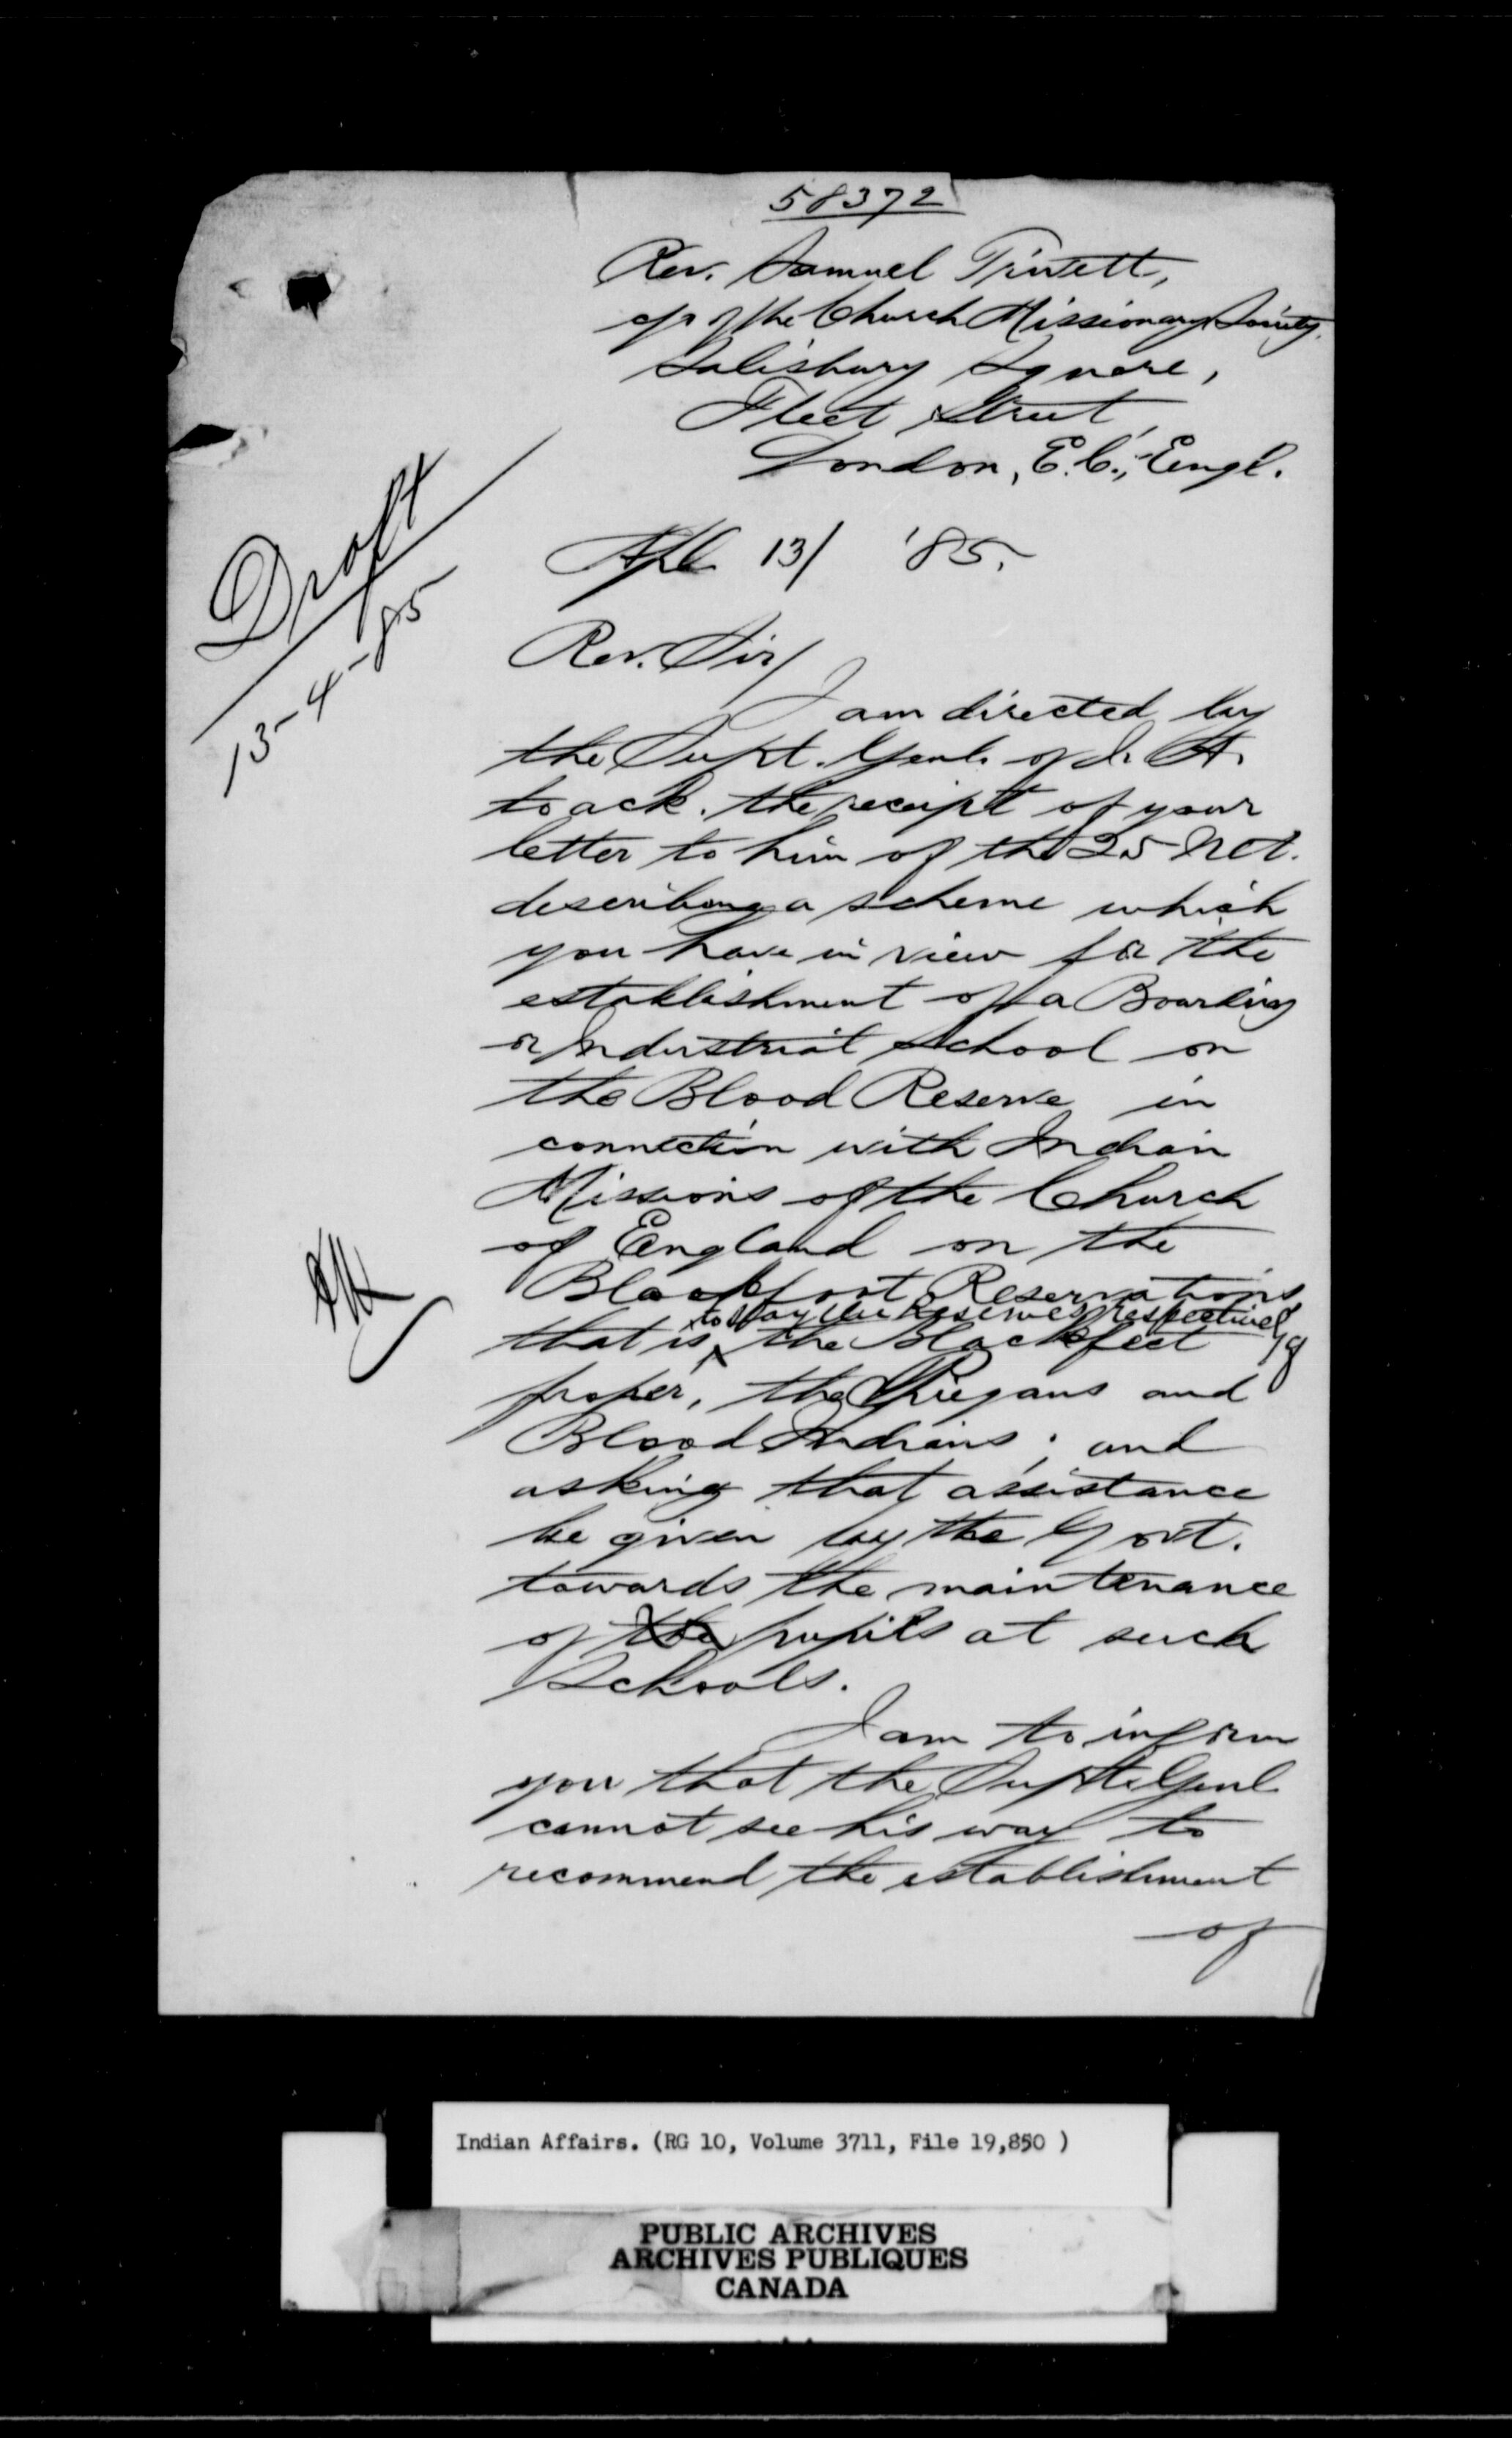 58372
Rev. Samuel Trivett,
c/o of the Church Missionary Society,
Salisbury Square,
Fleet Street,
London, E.C., Engl.
Draft
13-4-85
Apl. 13/ '85.
Rev. Sir/
I am directed by
the Supt. Genl. of I. A.
to ack. the receipt of your
letter to him of the 25 Ult.
describing a scheme which
you have in view for the
establishment of a Boarding
or Industrial School on
the Blood Reserve in
connection with Indian
Missions of the Church
of England on the
Blackfoot Reservations
to say the Reserves respectively
that is, the Blackfeet of
proper, the Piegans and
Blood Indians; and
asking that assistance
be given by the Govt.
towards the maintenance
of the pupils at such
Schools.
I am to inform
you that the Supt. Genl
cannot see his way to
recommend the establishment
of
Indian Affairs. (RG 10, Volume 3711, File 19,850 )
PUBLIC ARCHIVES
ARCHIVES PUBLIQUES
CANADA